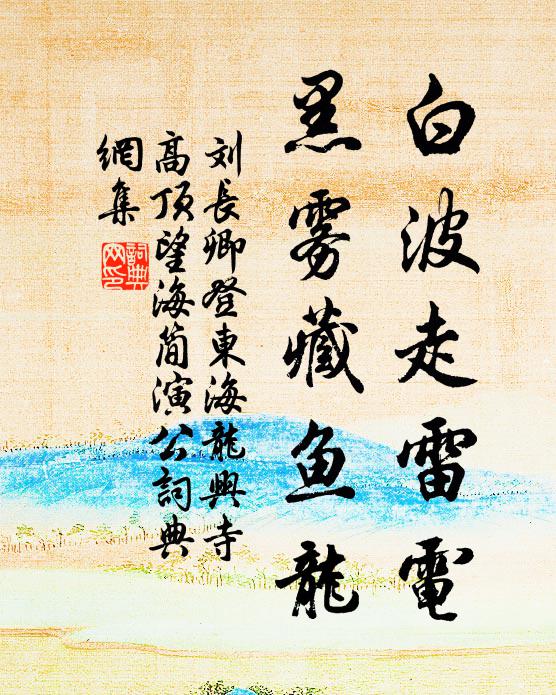 白波走雷電
黑雾藏鱼龍
刘長卿登東海龍興寺
高頂望海简演公詞典
網集
詞典
网印